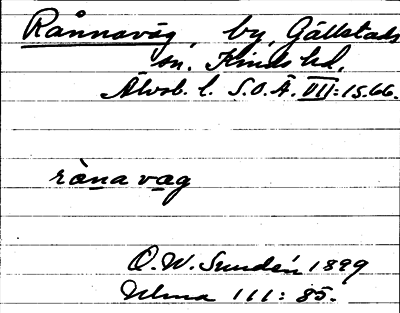 Rånnavåg, by, Gällstads
sn. Kinds hd,
Älvsb. l. S.O.Ä. VII:1566.
ràna vag
O.W. Sundén 1899
Ulma 111: 85.